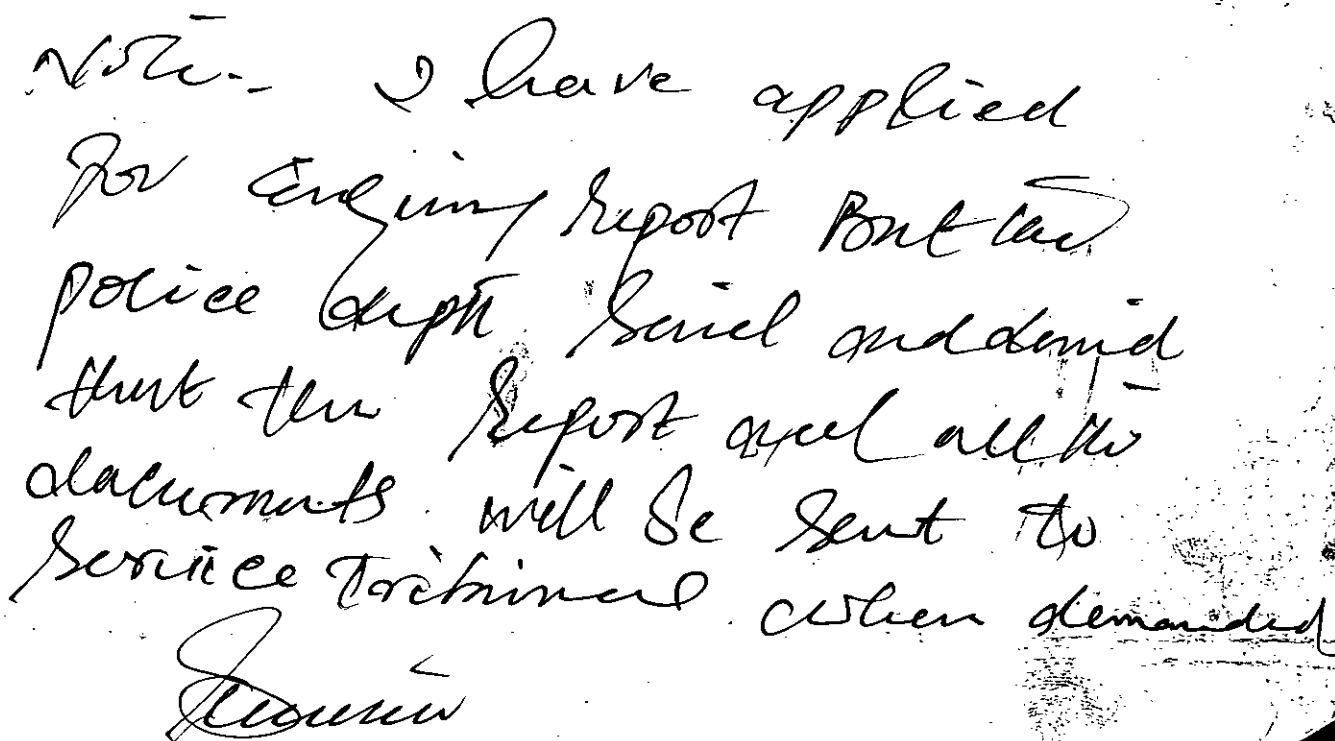 Note:- I have applied
for Enquiry Report But the
police deptt. Said and denied
that the Report and all the
documents will be Sent to
Service Tribunal when demanded